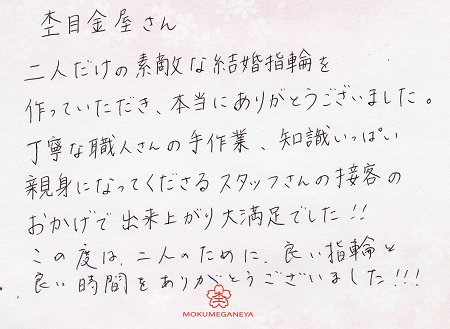 杢目金屋さん
二人だけの素敵な結婚指輪を
作っていただき、本当にありがとうございました。
丁寧な職人さんの手作業、知識いっぱい
親身になってくださるスタッフさんの接客の
おかげで出来上がり大満足でした!!
この度は、二人のために、良い指輪と
良い時間をありがとうございました!!!
杢
MOKUMEGANEYA